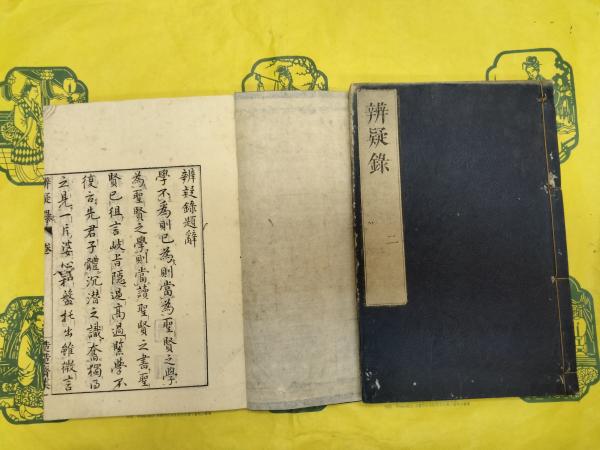 辨疑錄
二
辨疑錄題辭
學不為則已為則當為聖賢之學
為聖賢之學則當讀聖賢之書聖
賢已徂言岐旨隱過高過鑿學不
復古先君子體沉潛之識奮獨得
之見一片婆心和盤托出雖微言
辨疑錄 卷